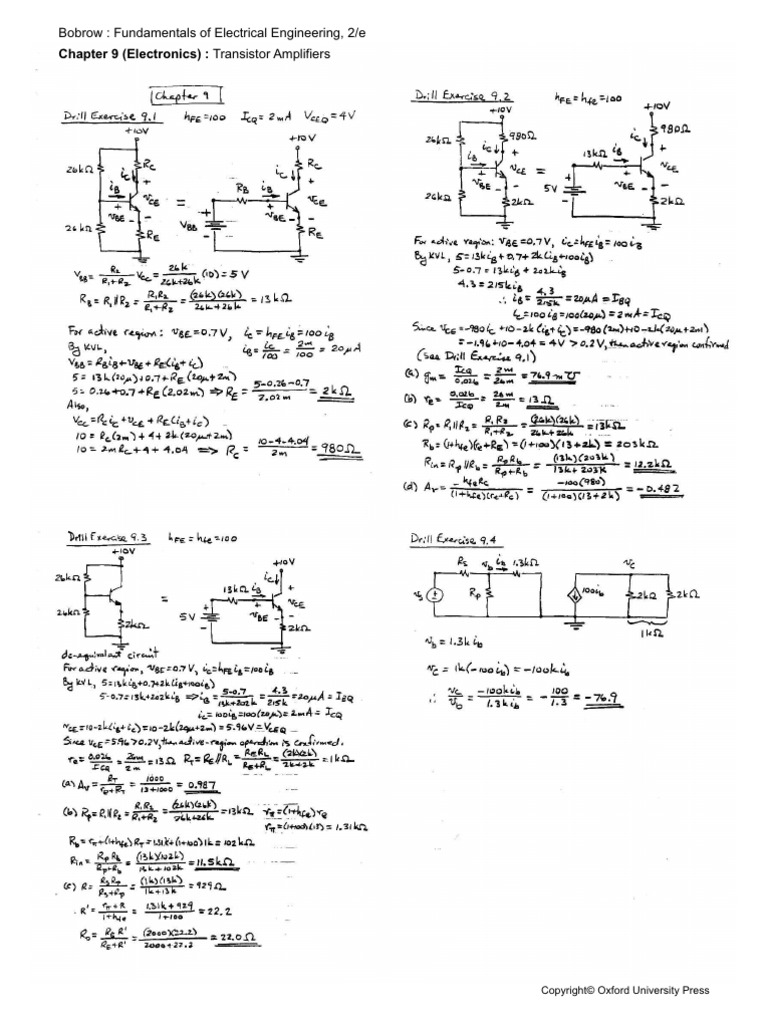 Bobrow : Fundamentals of Electrical Engineering, 2/e
Chapter 9 (Electronics) : Transistor Amplifiers
Chapter 9
Drill Exercise 9.1 hFE=100 ICQ=2mA VCEQ=4V
+10V
+10V
26kΩ
iC
RC
iC
RC
iB
RB
iB
vCE
=
vCE
vBE
vBE
VBB
26kΩ
RE
RE
VBB = R2/(R1+R2) VCC = 26k/(26k+26k) (10) = 5V
RB = R1//R2 = R1R2/(R1+R2) = (26k)(26k)/(26k+26k) = 13kΩ
For active region: vBE=0.7V, iC=hFE iB=100iB
By KVL, iB = iC/100 = 2m/100 = 20μA
VBB = RB iB + vBE + RE(iB+iC)
5 = 13k(20μ)+0.7+RE(20μ+2m)
5 = 0.26+0.7+RE(2.02m) ⇒ RE = (5-0.26-0.7)/2.02m = 2kΩ
Also,
VCC = RC iC + vCE + RE(iB+iC)
10 = RC(2m)+4+2k(20μ+2m)
10 = 2mRC+4+4.04 ⇒ RC = (10-4-4.04)/2m = 980Ω
Drill Exercise 9.2 hFE=hfe=100
+10V
+10V
26kΩ
980Ω
980Ω
iC
iC
iB
13kΩ
iB
vCE
=
vCE
vBE
vBE
5V
26kΩ
2kΩ
2kΩ
For active region: vBE=0.7V, iC=hFE iB=100iB
By KVL, 5=13kiB+0.7+2k(iB+100iB)
5-0.7=13kiB+202kiB
4.3=215kiB
∴ iB = 4.3/215k = 20μA = IBQ
iC=100iB=100(20μ)=2mA=ICQ
Since vCE=-980iC+10-2k(iB+iC)=-980(2m)+10-2k(20μ+2m)
=-1.96+10-4.04=4V>0.2V, then active region confirmed
(see Drill Exercise 9.1)
(a) gm = ICQ/0.026 = 2m/26m = 76.9m℧
(b) re = 0.026/ICQ = 26m/2m = 13Ω
(c) Rp = R1//R2 = R1R2/(R1+R2) = (26k)(26k)/(26k+26k) = 13kΩ
Rb=(1+hfe)(re+RE)=(1+100)(13+2k)=203kΩ
Rin = Rp//Rb = RpRb/(Rp+Rb) = (13k)(203k)/(13k+203k) = 12.2kΩ
(d) Av = -hfeRC/((1+hfe)(re+RC)) = -100(980)/((1+100)(13+2k)) = -0.482
Drill Exercise 9.3 hFE=hfe=100
+10V
+10V
26kΩ
iC
13kΩ iB
vCE
26kΩ
5V
vBE
2kΩ
2kΩ
dc-equivalent circuit
For active region, vBE=0.7V, iC=hFE iB=100iB
By KVL, 5=13kiB+0.7+2k(iB+100iB)
5-0.7=13kiB+202kiB ⇒ iB = (5-0.7)/(13k+202k) = 4.3/215k = 20μA = IBQ
iC=100iB=100(20μ)=2mA=ICQ
vCE=10-2k(iB+iC)=10-2k(20μ+2m)=5.96V=VCEQ
Since vCE=5.96>0.2V, then active-region operation is confirmed.
re = 0.026/ICQ = 26m/2m = 13Ω RT = RE//RL = RERL/(RE+RL) = (2k)(2k)/(2k+2k) = 1kΩ
(a) Av = RT/(re+RT) = 1000/(13+1000) = 0.987
(b) Rp = R1//R2 = R1R2/(R1+R2) = (26k)(26k)/(26k+26k) = 13kΩ rπ=(1+hfe)re
rπ=(1+100)(13)=1.31kΩ
Rb=rπ+(1+hfe)RT=1.31k+(1+100)1k=102kΩ
Rin = RpRb/(Rp+Rb) = (13k)(102k)/(13k+102k) = 11.5kΩ
(c) R = RsRp/(Rs+Rp) = (1k)(13k)/(1k+13k) = 929Ω
R' = (rπ+R)/(1+hfe) = (1.31k+929)/(1+100) = 22.2
Ro = RER'/(RE+R') = (2000)(22.2)/(2000+22.2) = 22.0Ω
Drill Exercise 9.4
Rs vb ib 1.3kΩ vc
vs
Rp
100ib
2kΩ
2kΩ
1kΩ
vb=1.3kib
vc=1k(-100ib)=-100kib
∴ vc/vb = -100kib/1.3kib = -100/1.3 = -76.9
Copyright© Oxford University Press